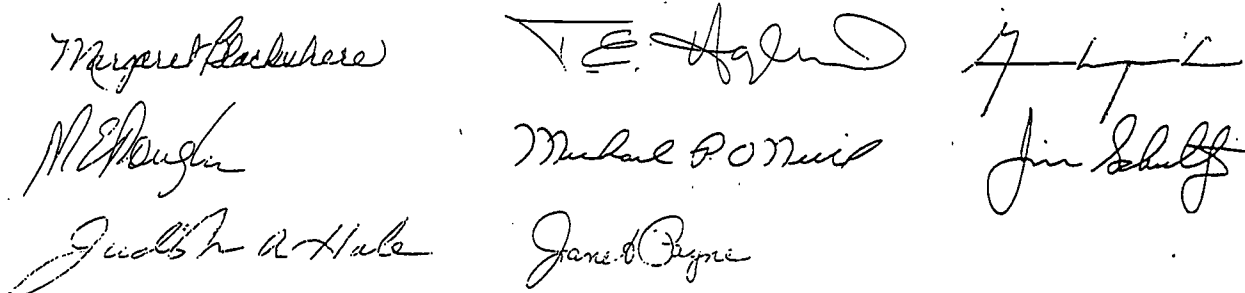 Margaret Blackshere
T.E. Haglund
M E Dougher
Michael P. O'Neill
Jim Schultz
Judith A Hale
Janet Payne